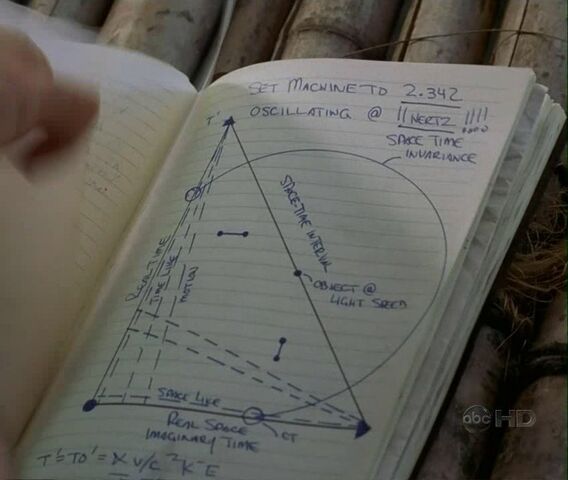 SET MACHINE TO 2.342
OSCILLATING @ 11 HERTZ
SPACE TIME
INVARIANCE
T'
SPACE-TIME INTERVAL
REAL TIME
TIME LIKE
MOTION
OBJECT @
LIGHT SPEED
SPACE LIKE
REAL SPACE
IMAGINARY TIME
CT
abc HD